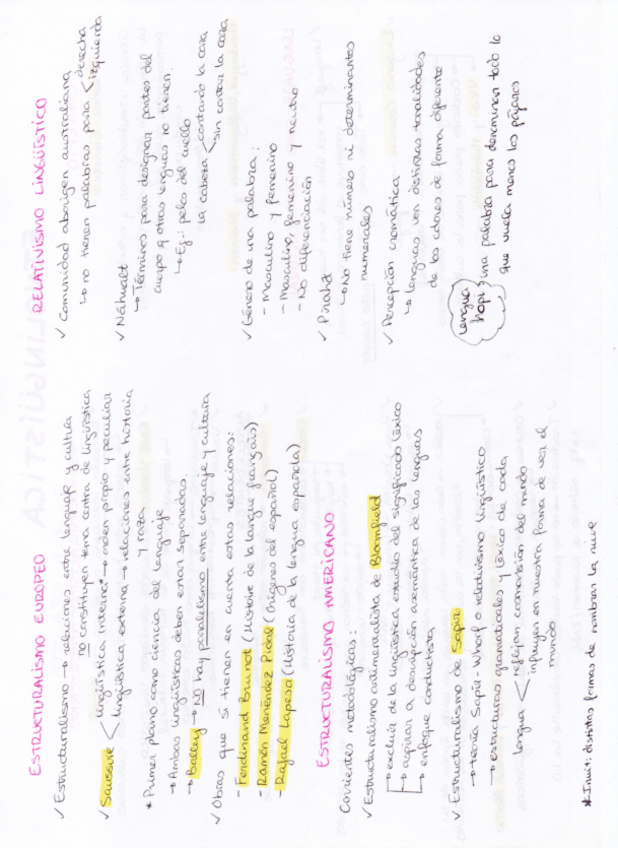 ESTRUCTURALISMO EUROPEO
✓ Estructuralismo → relaciones entre lenguaje y cultura
no constituyen tema central de lingüística
✓ Saussure < lingüística interna* → orden propio y peculiar
lingüística externa → relaciones entre historia
y raza
* Primer plano como ciencia del lenguaje
→ Ambas lingüísticas deben estar separadas.
→ Balley → NO hay paralelismo entre lenguaje y cultura
✓ Obras que sí tienen en cuenta estas relaciones:
- Ferdinand Brunot (Histoire de la langue français)
- Ramón Menéndez Pidal (Orígenes del español)
- Rafael Lapesa (Historia de la lengua española)
ESTRUCTURALISMO AMERICANO
Corrientes metodológicas:
✓ Estructuralismo antimentalista de Bloomfield
→ excluir de la lingüística estudio del significado léxico
→ aspirar a descripción asemántica de las lenguas
→ enfoque conductista
✓ Estructuralismo de Sapir
→ teoría Sapir-Whorf o relativismo lingüístico
→ estructuras gramaticales y léxico de cada
lengua < reflejan cosmovisión del mundo
influyen en nuestra forma de ver el
mundo
* Inuit: distintas formas de nombrar la nieve
RELATIVISMO LINGÜÍSTICO
✓ Comunidad aborigen australiana
→ no tienen palabras para < derecha
izquierda
✓ Náhualt
→ Términos para designar partes del
cuerpo q otras lenguas no tienen.
→ Eg.: pelos del cuello
la cabeza < contando la cara
sin contar la cara
✓ Género de una palabra:
- Masculino y femenino
- Masculino, femenino y neutro
- No diferenciación
✓ Pirahã
→ No tiene número ni determinantes
numerales
✓ Percepción cromática
→ lenguas ven distintas tonalidades
de los colores de forma diferente
lengua hopi > una palabra para denominar todo lo
que vuela menos los pájaros